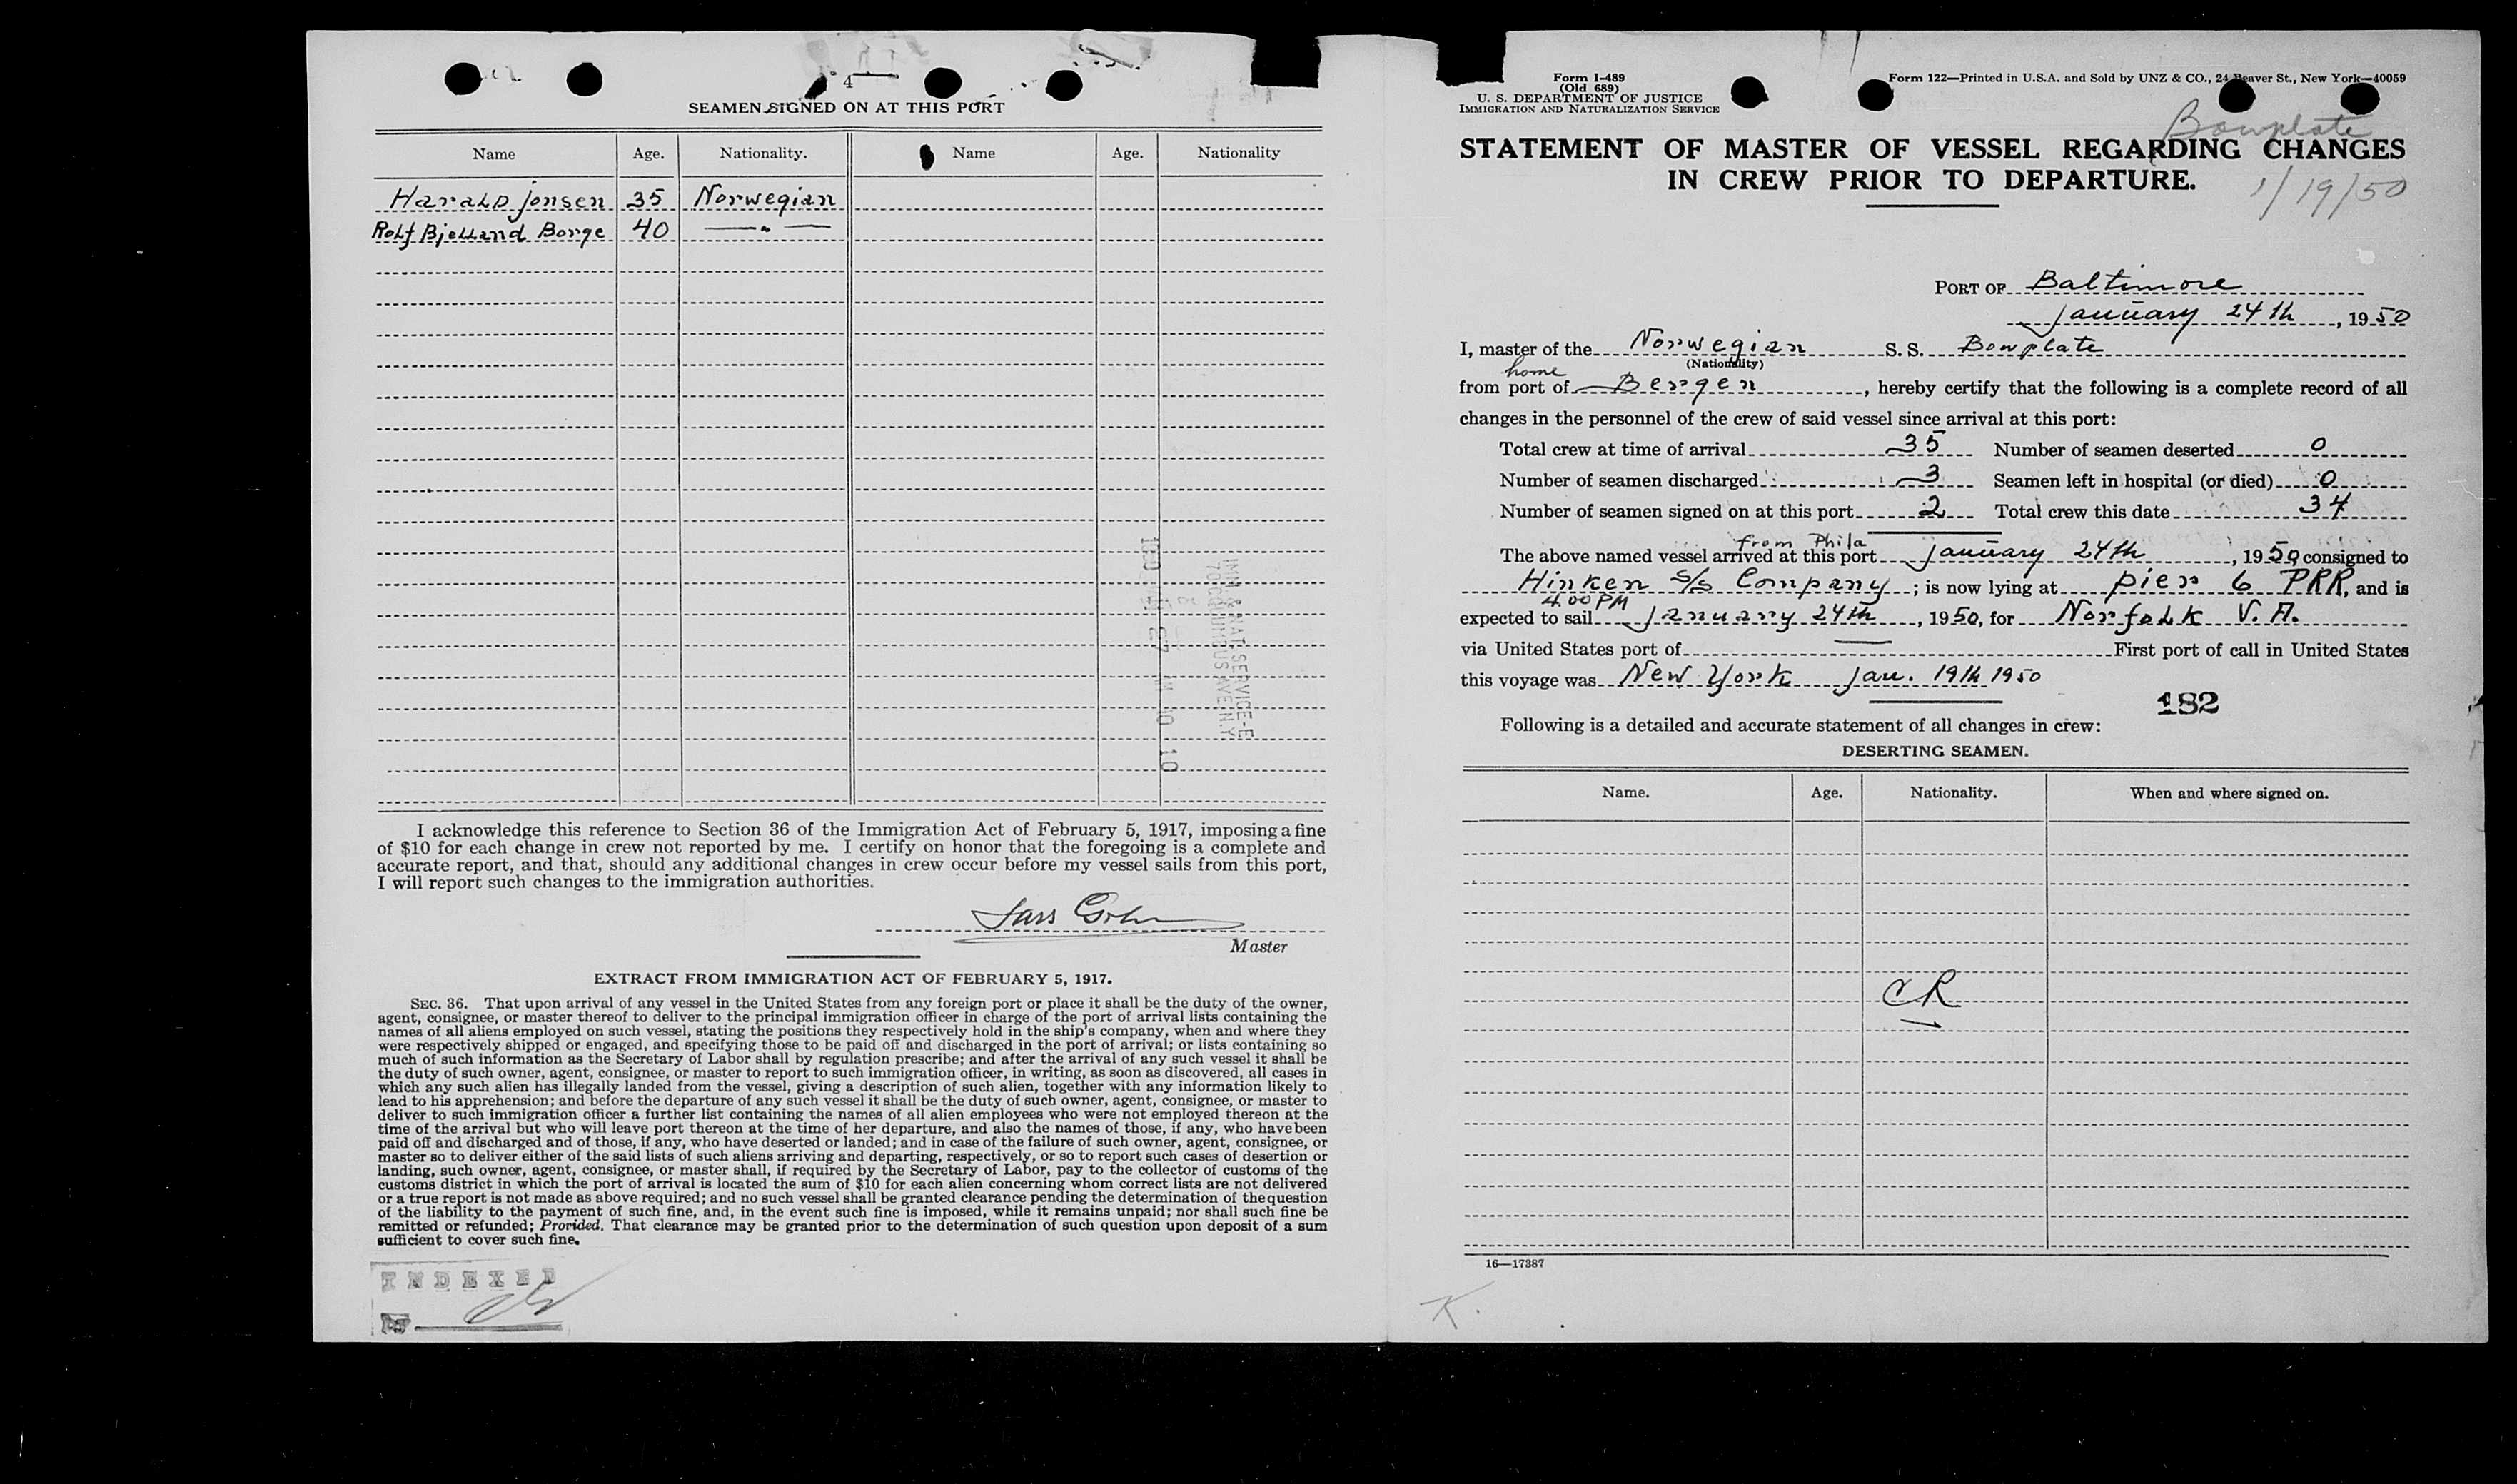 4
SEAMEN SIGNED ON AT THIS PORT
Name Age. Nationality. Name Age. Nationality
Harald Jonsen 35 Norwegian
Rolf Bjelland Borge 40 — " —
IMM. & NAT. SERVICE-E
70 COLUMBUS AVE N.Y.
I acknowledge this reference to Section 36 of the Immigration Act of February 5, 1917, imposing a fine
of $10 for each change in crew not reported by me. I certify on honor that the foregoing is a complete and
accurate report, and that, should any additional changes in crew occur before my vessel sails from this port,
I will report such changes to the immigration authorities.
Master
EXTRACT FROM IMMIGRATION ACT OF FEBRUARY 5, 1917.
SEC. 36. That upon arrival of any vessel in the United States from any foreign port or place it shall be the duty of the owner,
agent, consignee, or master thereof to deliver to the principal immigration officer in charge of the port of arrival lists containing the
names of all aliens employed on such vessel, stating the positions they respectively hold in the ship's company, when and where they
were respectively shipped or engaged, and specifying those to be paid off and discharged in the port of arrival; or lists containing so
much of such information as the Secretary of Labor shall by regulation prescribe; and after the arrival of any such vessel it shall be
the duty of such owner, agent, consignee, or master to report to such immigration officer, in writing, as soon as discovered, all cases in
which any such alien has illegally landed from the vessel, giving a description of such alien, together with any information likely to
lead to his apprehension; and before the departure of any such vessel it shall be the duty of such owner, agent, consignee, or master to
deliver to such immigration officer a further list containing the names of all alien employees who were not employed thereon at the
time of the arrival but who will leave port thereon at the time of her departure, and also the names of those, if any, who have been
paid off and discharged and of those, if any, who have deserted or landed; and in case of the failure of such owner, agent, consignee, or
master so to deliver either of the said lists of such aliens arriving and departing, respectively, or so to report such cases of desertion or
landing, such owner, agent, consignee, or master shall, if required by the Secretary of Labor, pay to the collector of customs of the
customs district in which the port of arrival is located the sum of $10 for each alien concerning whom correct lists are not delivered
or a true report is not made as above required; and no such vessel shall be granted clearance pending the determination of the question
of the liability to the payment of such fine, and, in the event such fine is imposed, while it remains unpaid; nor shall such fine be
remitted or refunded; Provided, That clearance may be granted prior to the determination of such question upon deposit of a sum
sufficient to cover such fine.
INDEXED
BY
Form I-489
(Old 689)
U. S. DEPARTMENT OF JUSTICE
IMMIGRATION AND NATURALIZATION SERVICE
Form 122—Printed in U.S.A. and Sold by UNZ & CO., 24 Beaver St., New York—40059
Bowplate
STATEMENT OF MASTER OF VESSEL REGARDING CHANGES
IN CREW PRIOR TO DEPARTURE.
1/19/50
PORT OF Baltimore
January 24th, 1950
I, master of the Norwegian S. S. Bowplate
(Nationality)
home
from port of Bergen, hereby certify that the following is a complete record of all
changes in the personnel of the crew of said vessel since arrival at this port:
Total crew at time of arrival 35 Number of seamen deserted 0
Number of seamen discharged 3 Seamen left in hospital (or died) 0
Number of seamen signed on at this port 2 Total crew this date 34
from Phila
The above named vessel arrived at this port January 24th, 1950 consigned to
Hinken S/S Company; is now lying at pier 6 PRR, and is
4.00 PM
expected to sail January 24th, 1950, for Norfolk V.A.
via United States port of — First port of call in United States
this voyage was New York Jan. 19th 1950
182
Following is a detailed and accurate statement of all changes in crew:
DESERTING SEAMEN.
Name. Age. Nationality. When and where signed on.
16—17387
K.